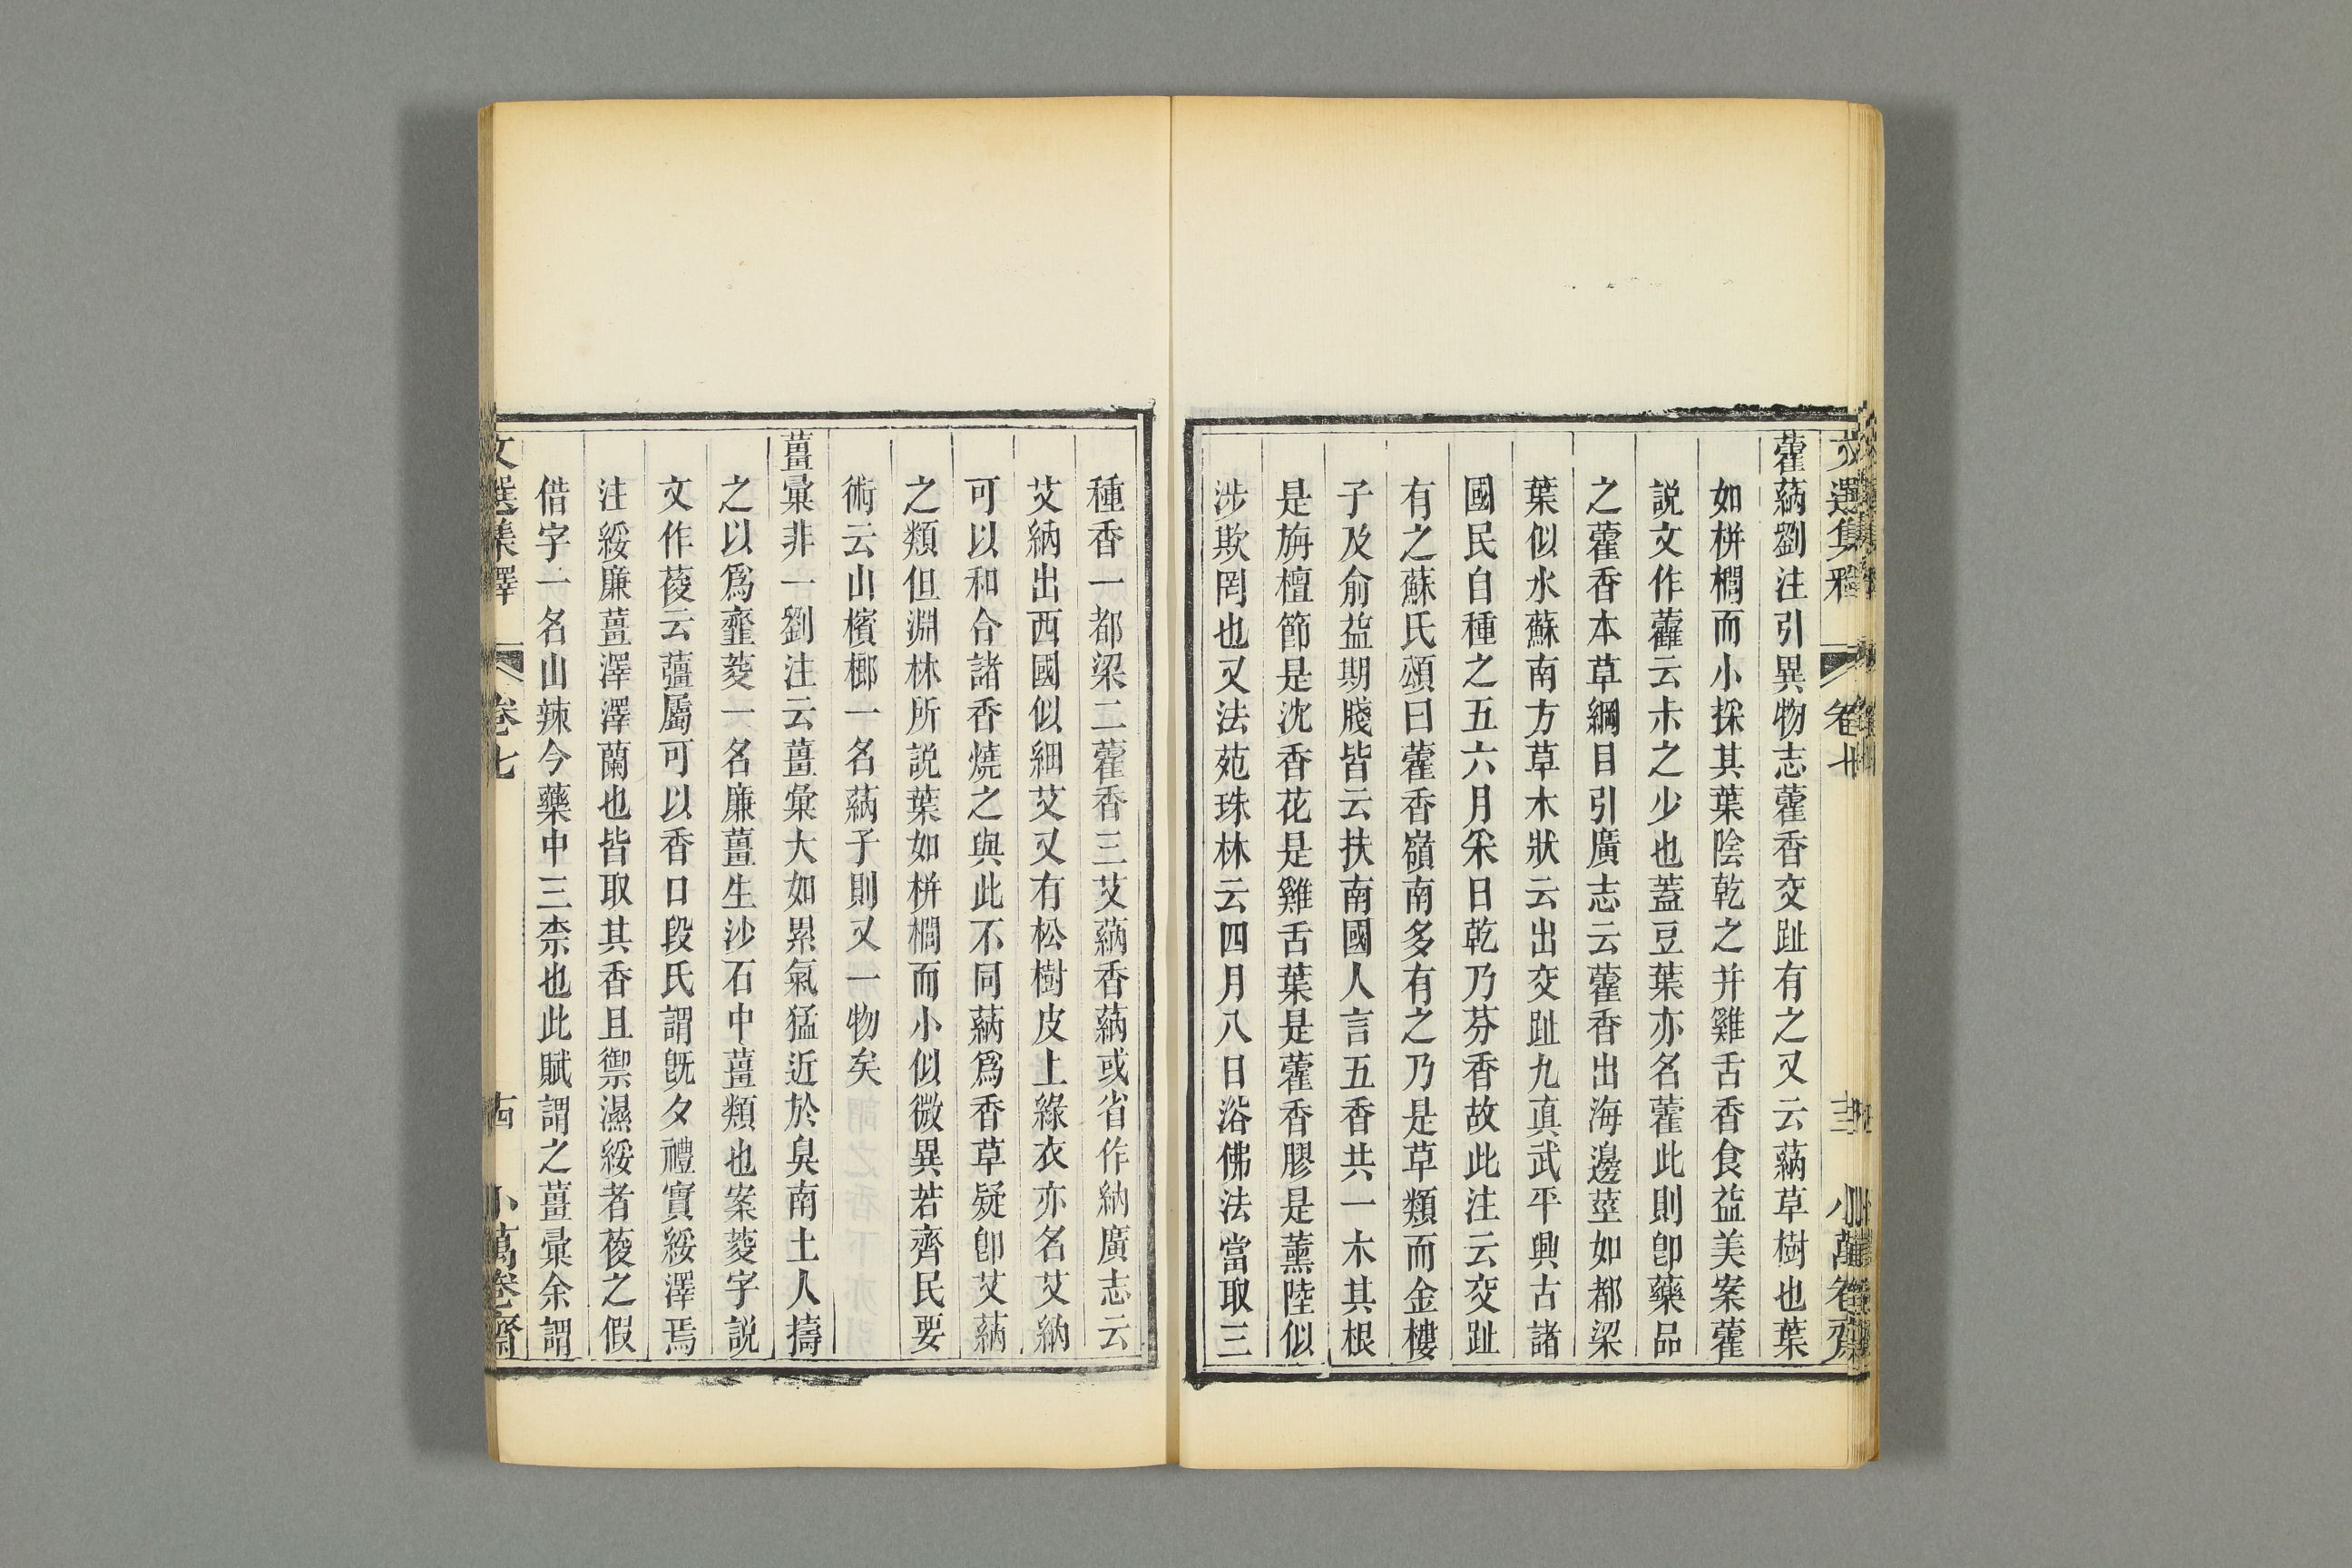 藿蒳劉注引異物志藿香交趾有之又云蒳草樹也葉
如栟櫚而小採其葉陰乾之并雞舌香食益美案藿
説文作藿云尗之少也蓋豆葉亦名藿此則卽藥品
之藿香本草綱目引廣志云藿香出海邊莖如都梁
葉似水蘇南方草木狀云出交趾九真武平興古諸
國民自種之五六月采日乾乃芬香故此注云交趾
有之蘇氏頌曰藿香嶺南多有之乃是草類而金樓
子及俞益期牋皆云扶南國人言五香共一木其根
是旃檀節是沈香花是雞舌葉是藿香膠是薰陸似
涉欺罔也又法苑珠林云四月八日浴佛法當取三
種香一都梁二藿香三艾蒳香蒳或省作納廣志云
艾納出西國似細艾又有松樹皮上綠衣亦名艾納
可以和合諸香燒之與此不同蒳爲香草疑卽艾蒳
之類但淵林所説葉如栟櫚而小似微異若齊民要
術云山檳榔一名蒳子則又一物矣
薑彙非一劉注云薑彙大如累氣猛近於臭南土人擣
之以爲虀菱一名廉薑生沙石中薑類也案菱字説
文作葰云薑屬可以香口段氏謂旣夕禮實綏澤焉
注綏廉薑澤澤蘭也皆取其香且禦濕綏者葰之假
借字一名山辣今藥中三柰也此賦謂之薑彙余謂
文選集釋
卷七
小萬卷齋